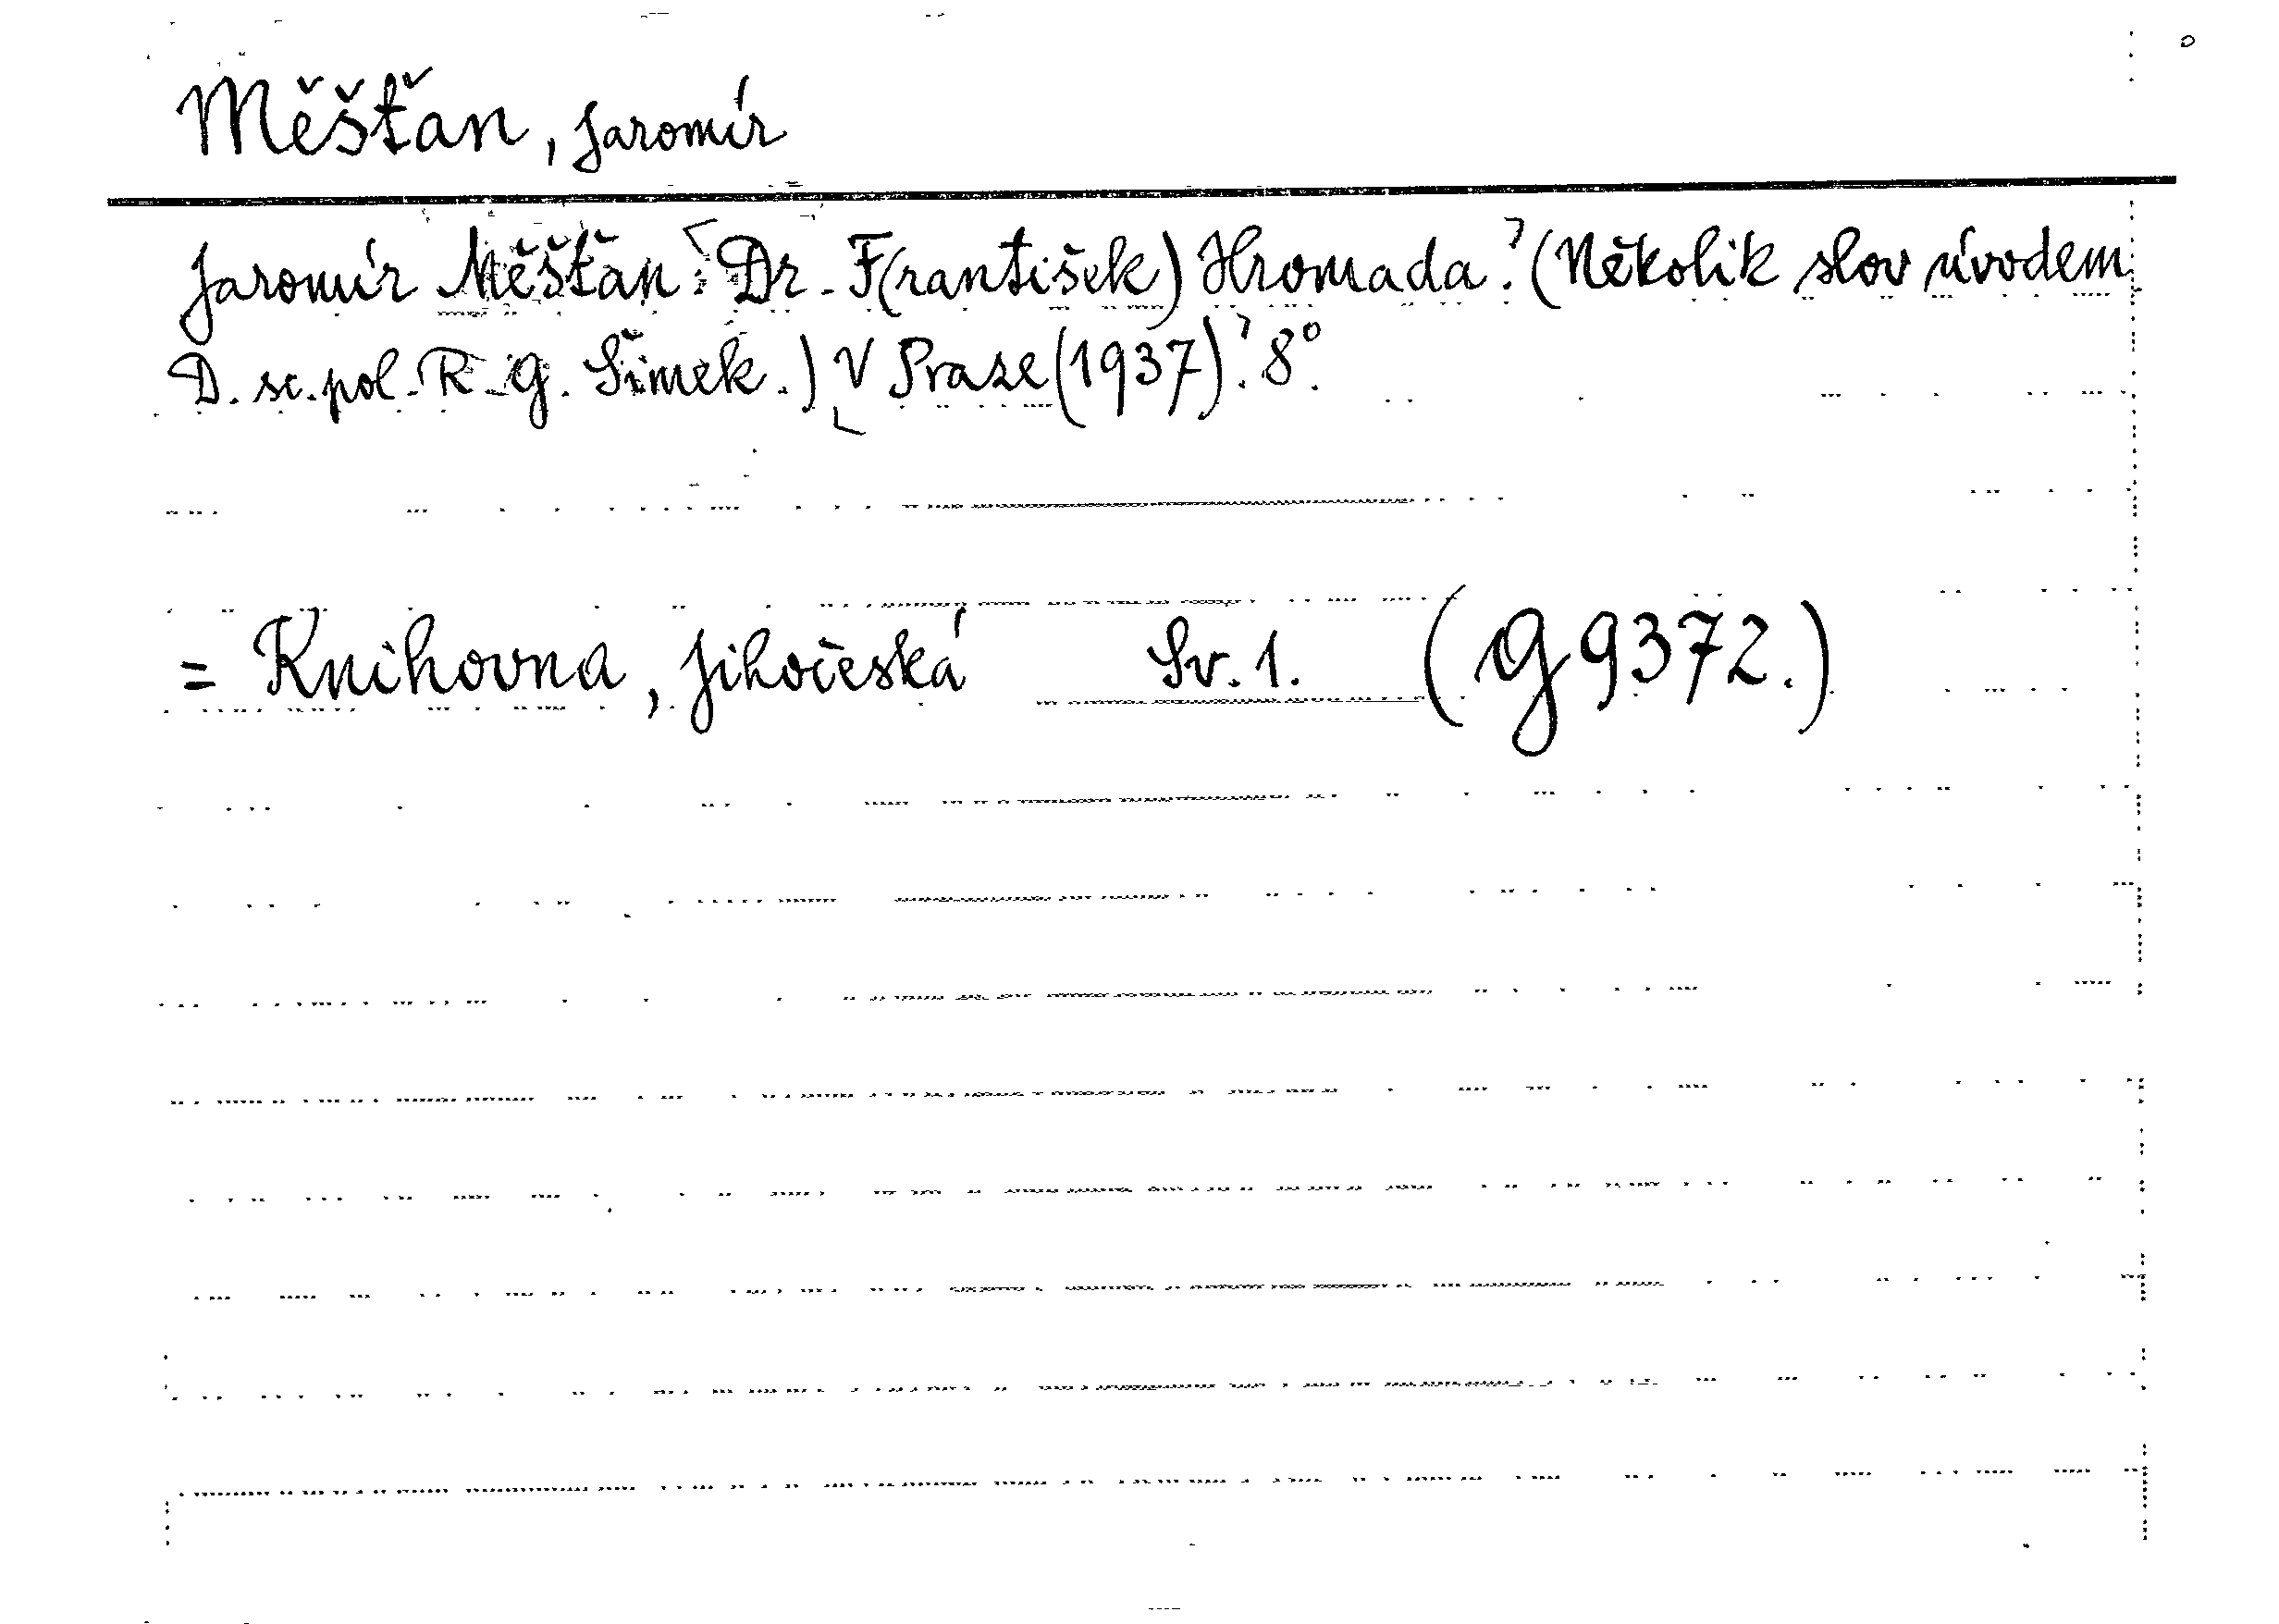 Měšťan, Jaromír
Jaromír Měšťan: Dr. F(rantišek) Hromada. (Několik slov úvodem
D. sc. pol. R. G. Šimek.) V Praze (1937). 8°.
= Knihovna, Jihočeská Sv. 1. (G 9372.)